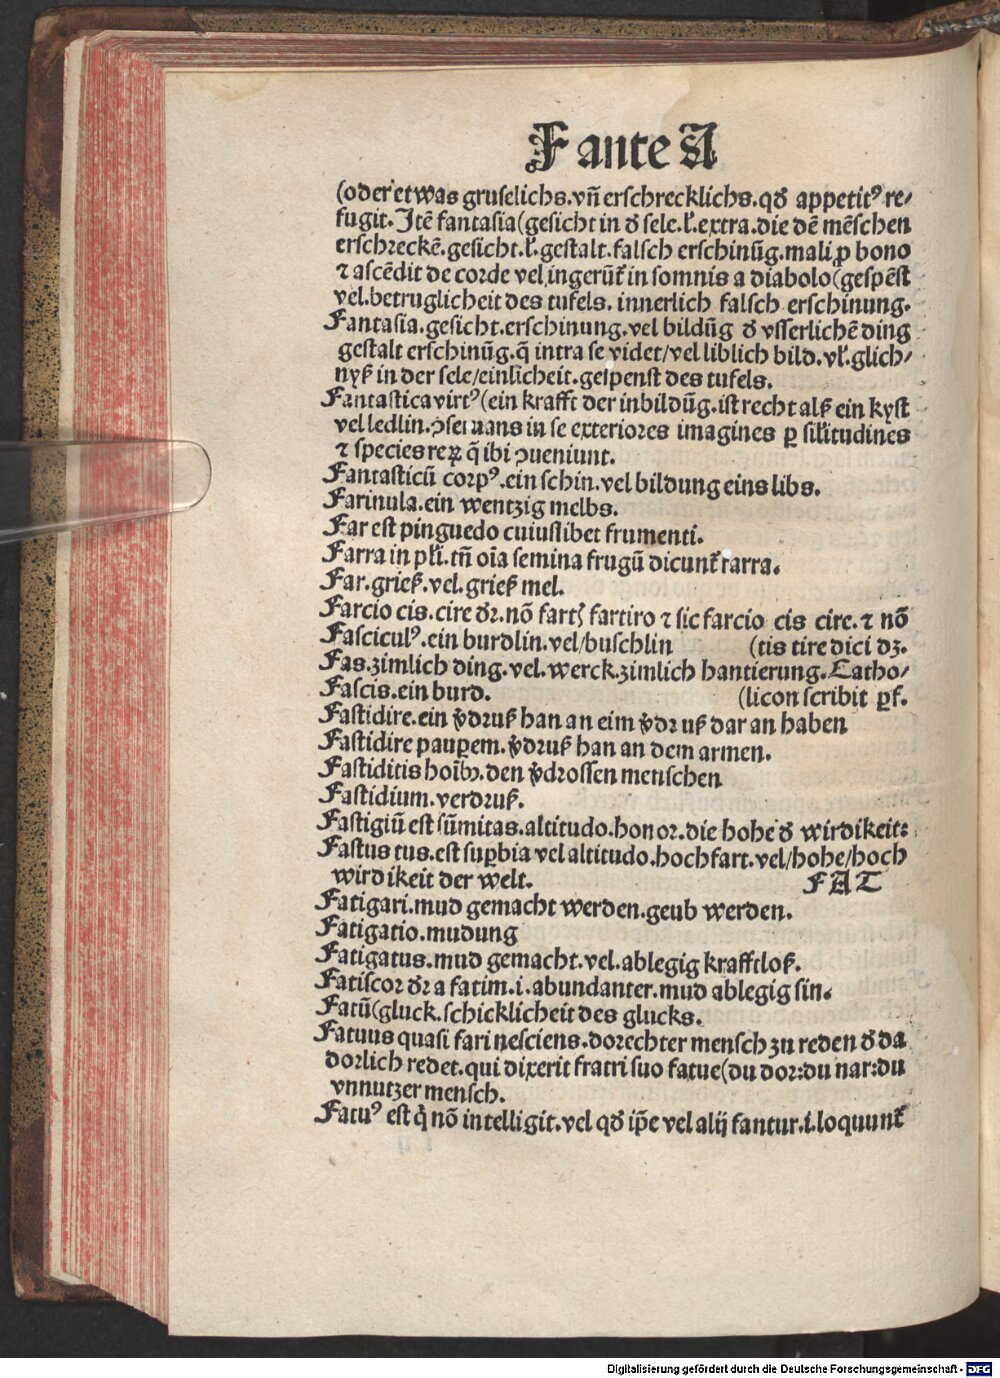 Fante A
(oder etwas gruselichs.vñ erschrecklichs.qď appetitꝰ re⸗
fugit. Jtē fantasia(gesicht in ď sele.ł.extra.die dē mēschen
erschreckē.gesicht.ł.gestalt.falsch erschinūg.mali ꝓ bono
⁊ ascēdit de corde vel ingerūt᷑ in somnis a diabolo(gespēst
vel.betruglicheit des tufels. innerlich falsch erschinung.
Fantasia.gesicht.erschinung.vel bildūg ď vsserlichē ding
gestalt erschinūg.q̄ intra se videt/vel liblich bild.vł.glich⸗
nyß in der sele/einlicheit.gespenst des tufels.
Fantastica virtꝰ(ein krafft der inbildūg.ist recht alß ein kyst
vel ledlin.ꝯseruans in se exteriores imagines ꝑ silitudines
⁊ species reꝝ q̄ ibi ꝯueniunt.
Fantasticū corpꝰ.ein schin.vel bildung eins libs.
Farinula.ein wentzig melbs.
Far est pinguedo cuiuslibet frumenti.
Farra in płi.tñ oīa semina frugū dicunt᷑ farra.
Far.grieß.vel.grieß mel.
Farcio cis.cire ďr.nō fartꝭ fartiro ⁊ sic farcio cis cire.⁊ nō
Fasciculꝰ.ein burdlin.vel/buschlin (tis tire dici dꝫ.
Fas.zimlich ding.vel.werck.zimlich hantierung.Catho⸗
Fascis.ein burd. (licon scribit ꝑf.
Fastidire.ein v̄druß han an eim v̄druß dar an haben
Fastidire pauꝑem.v̄druß han an dem armen.
Fastiditis hoībꝰ.den v̄drossen menschen
Fastidium.verdruß.
Fastigiū est sūmitas.altitudo.honor.die hohe ď wirdikeit:
Fastus tus.est suꝑbia vel altitudo.hochfart.vel/hohe/hoch
wirdikeit der welt. FAT
Fatigari.mud gemacht werden.geub werden.
Fatigatio.mudung
Fatigatus.mud gemacht.vel.ablegig krafftloß.
Fatiscor ďr a fatim.i.abundanter.mud ablegig sin.
Fatū(gluck.schicklicheit des glucks.
Fatuus quasi fari nesciens.dorechter mensch zu reden ď da
dorlich redet.qui dixerit fratri suo fatue(du dor:du nar:du
vnnutzer mensch.
Fatuꝰ est q̇ nō intelligit.vel qď ip̄e vel alij fantur.i.loquunt᷑
Digitalisierung gefördert durch die Deutsche Forschungsgemeinschaft - DFG